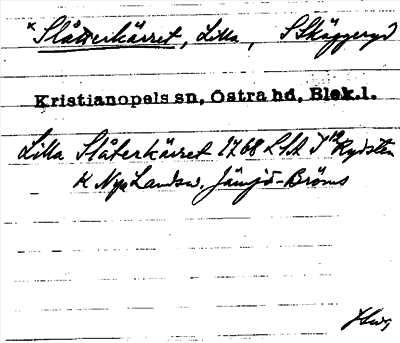 *Slåtterkärret, Lilla, S Skäggeryd
Kristianopels sn, Östra hd, Blek.l.
Lilla Slåterkärret 1768 LSA J 19 Rydsten
K Nya Landsv. Jämjö-Bröms